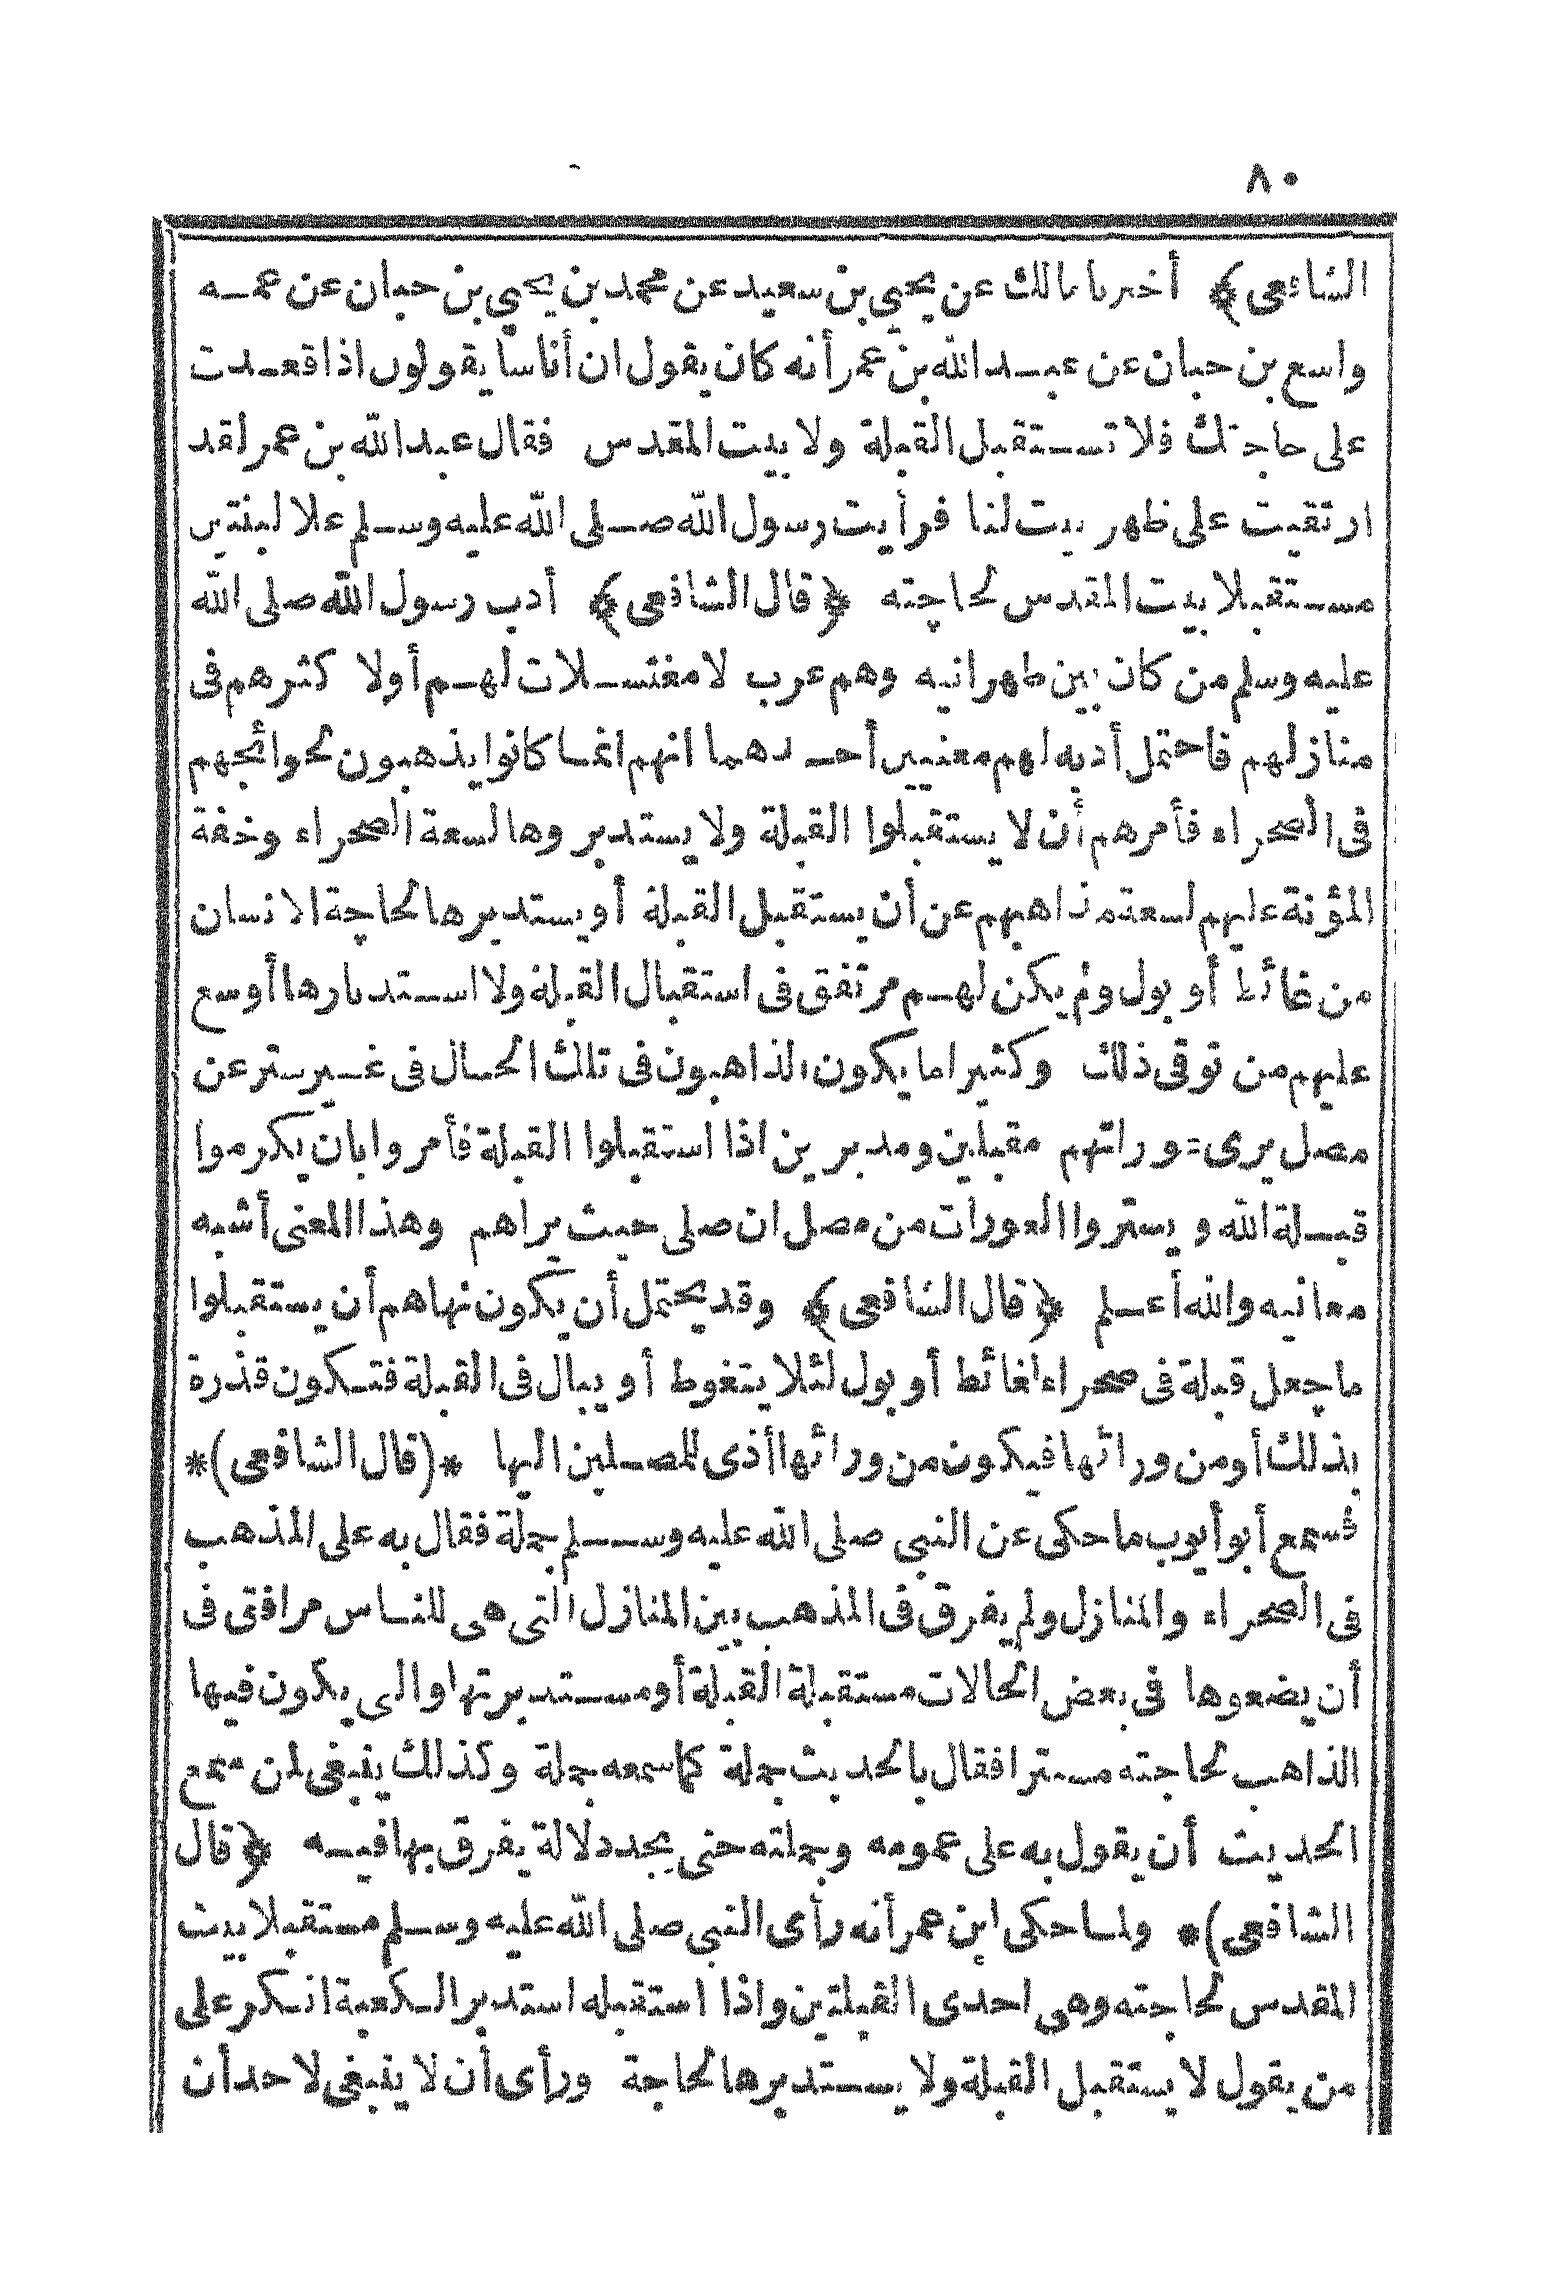 ٨٠
الشافعى﴾ أخبرنا مالك عن يحيى بن سعيد عن محمد بن يحيى بن حبان عن عمه
واسع بن حبان عن عبد الله بن عمر أنه كان يقول ان أناسا يقولون اذا قعدت
على حاجتك فلا تستقبل القبلة ولا بيت المقدس فقال عبد الله بن عمر لقد
ارتقيت على ظهر بيت لنا فرأيت رسول الله صلى الله عليه وسلم علا لبنتين
مستقبلا بيت المقدس لحاجته ﴿قال الشافعى﴾ أدب رسول الله صلى الله
عليه وسلم من كان بين ظهرانيه وهم عرب لا مغتسلات لهم أولا كثرهم فى
منازلهم فاحتمل أدبه لهم معنيين أحدهما انهم انما كانوا يذهبون لحوائجهم
فى الصحراء فأمرهم أن لا يستقبلوا القبلة ولا يستدبروها لسعة الصحراء وخفة
المؤنة عليهم لسعة مذاهبهم عن أن يستقبل القبلة أو يستدبرها لحاجة الانسان
من غائط أو بول ولم يكن لهم مرتفق فى استقبال القبلة ولا استدبارها أوسع
عليهم من توقى ذلك وكثيرا ما يكون الذاهبون فى تلك الحال فى غير ستر عن
مصل يرى عوراتهم مقبلين ومدبرين اذا استقبلوا القبلة فأمروا بان يكرموا
قبلة الله ويستروا العورات من مصل ان صلى حيث يراهم وهذا المعنى أشبه
معانيه والله أعلم ﴿قال الشافعى﴾ وقد يحتمل أن يكون نهاهم أن يستقبلوا
ما جعل قبلة فى صحراء لغائط أو بول لئلا يتغوط أو يبال فى القبلة فتكون قذرة
بذلك أو من ورائها فيكون من ورائها أذى للمصلين اليها *(قال الشافعى)*
فسمع أبو أيوب ما حكى عن النبى صلى الله عليه وسلم جملة فقال به على المذهب
فى الصحراء والمنازل ولم يفرق فى المذهب بين المنازل التى هى للناس مرافق فى
أن يضعوها فى بعض الحالات مستقبلة القبلة أو مستدبرتها والى يكون فيها
الذاهب لحاجته مستترا فقال بالحديث جملة كما سمعه جملة وكذلك ينبغى لمن سمع
الحديث أن يقول به على عمومه وجملته حتى يجد دلالة يفرق بها فيه ﴿قال
الشافعى)* ولما حكى ابن عمر أنه رأى النبى صلى الله عليه وسلم مستقبلا بيت
المقدس لحاجته وهى احدى القبلتين واذا استقبله استدبر الكعبة انكر على
من يقول لا يستقبل القبلة ولا يستدبرها لحاجة ورأى أن لا ينبغى لاحد أن